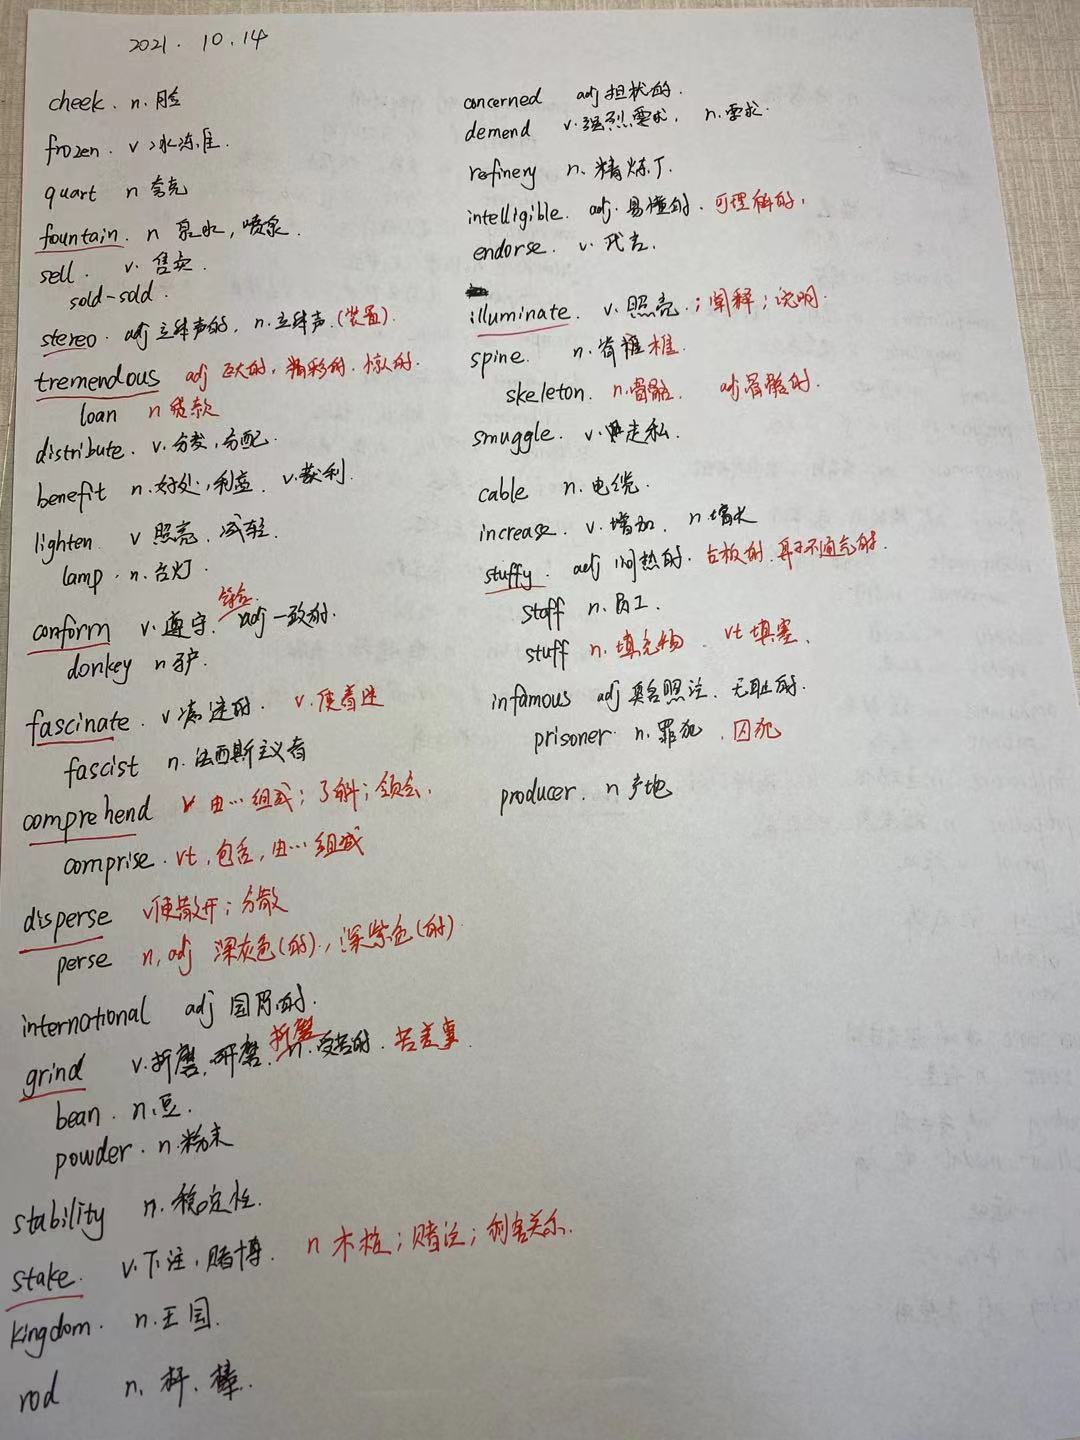 2021.10.14
cheek. n.脸
frozen. v 冰冻住.
quart n 夸克
fountain. n 泉水,喷泉.
sell. v. 售卖.
sold-sold.
stereo. adj 立体声的, n.立体声.(装置).
tremendous adj 巨大的,精彩的.惊人的.
loan n 贷款
distribute. v.分发,分配.
benefit n.好处,利益. v.获利.
lighten. v 照亮.减轻.
lamp. n.台灯.
conform v.遵守. 符合. adj 一致的.
donkey n 驴.
fascinate. v 着迷的. v.使着迷
fascist n.法西斯主义者
comprehend v 由…组成;了解;领会.
comprise. vt,包含,由…组成
disperse v使散开;分散
perse n,adj 深灰色(的),深紫色(的).
international adj 国际的.
grind v.折磨,研磨. 折磨 n.受苦的. 苦差事.
bean. n.豆.
powder. n.粉末
stability n.稳定性.
stake. v.下注,赌博. n 木桩;赌注;利害关系.
kingdom. n.王国.
rod n. 杆、棒.
concerned adj 担忧的.
demend v.强烈要求, n.要求.
refinery n.精炼厂
intelligible. adj.易懂的.可理解的,
endorse. v.代言.
illuminate. v.照亮.;阐释;说明.
spine. n.脊椎椎.
skeleton. n.骨骼. adj 骨骼的.
smuggle. v.走私.
cable n.电缆.
increase. v.增加. n.增长
stuffy. adj 闷热的.古板的.鼻子不通气的.
staff n.员工.
stuff n.填充物. vt 填塞.
infamous adj 臭名昭著、无耻的.
prisoner n.罪犯.囚犯
producer. n 产地